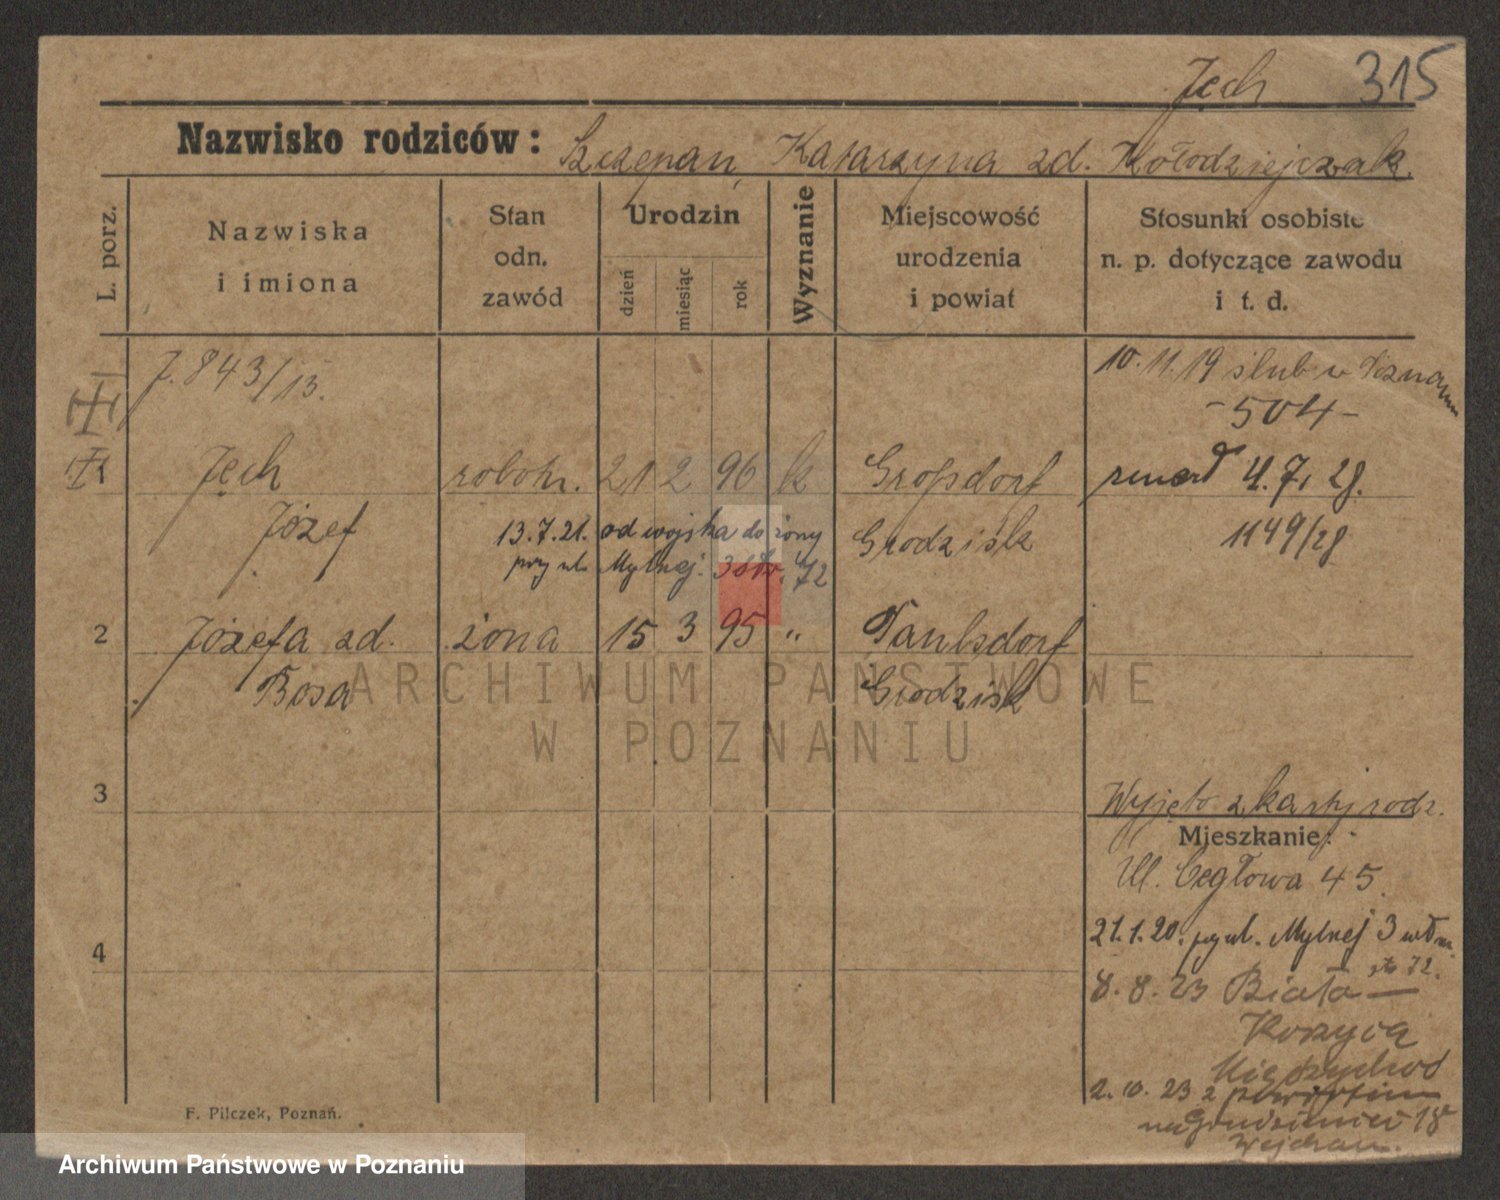 Jęch 315
Nazwisko rodziców: Szczepan, Katarzyna zd. Kołodziejczak.
L. porz.
Nazwiska
i imiona
Stan
odn.
zawód
Urodzin
dzień
miesiąc
rok
Wyznanie
Miejscowość
urodzenia
i powiat
Stosunki osobiste
n. p. dotyczące zawodu
i t. d.
J. 843/15.
10.11.19 ślub w Poznaniu
-504-
1 Jęch robotn. 21 2 96 k Großdorf zmarł 4.7.28.
Józef 13.7.21. od wojska do żony Grodzisk 1149/28
przy ul. Mylnej 38 72
2 Józefa zd. żona 15 3 95 " Taubsdorf
Bosa Grodzisk
3
Wyjęto z karty rodz.
Mieszkanie:
Ul. Cegłowa 45.
21.1.20. przy ul. Mylnej 3
72.
4
8.8.23 Biała —
Międzychód
2.10.23 z powrotem
na 18
F. Pilczek, Poznań.
ARCHIWUM PAŃSTWOWE
W POZNANIU
Archiwum Państwowe w Poznaniu